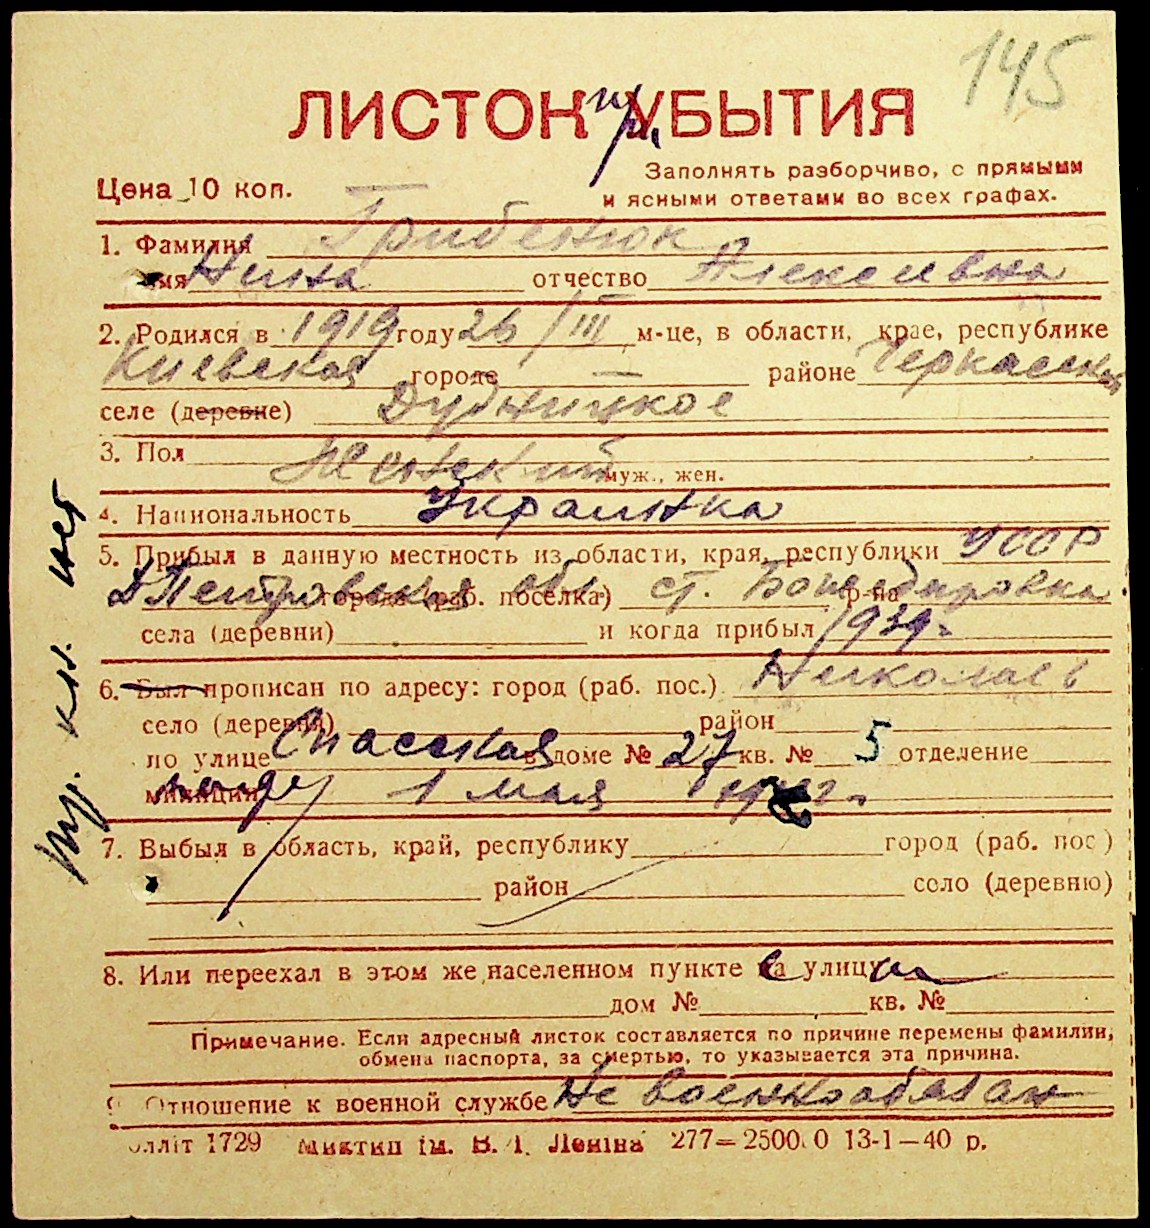 145
ЛИСТОК при УБЫТИЯ
Цена 10 коп.
Заполнять разборчиво, с прямыми
и ясными ответами во всех графах.
1. Фамилия Грибенюк
имя Нина отчество Алексеевна
2. Родился в 1919 году 26/III м-це, в области, крае, республике
Киевская городе — районе Черкасский
селе (деревне) Дубницкое
3. Пол Женский муж., жен.
4. Национальность Украинка
5. Прибыл в данную местность из области, края, республики УССР
Д Петровская обл. города (раб. поселка) ст. Божедаровка р-на
села (деревни) и когда прибыл 1939г.
6. Был прописан по адресу: город (раб. пос.) Николаев
село (деревня) район
по улице Спасская в доме № 27 кв. № 5 отделение
милиции 1 мая
7. Выбыл в область, край, республику город (раб. пос.)
район село (деревню)
8. Или переехал в этом же населенном пункте на улицу
дом № кв. №
Примечание. Если адресный листок составляется по причине перемены фамилии,
обмена паспорта, за смертью, то указывается эта причина.
9. Отношение к военной службе Не военнообязан
1729 ім. В. І. Леніна 277—25000 13-1—40 р.
тр. кн. нет